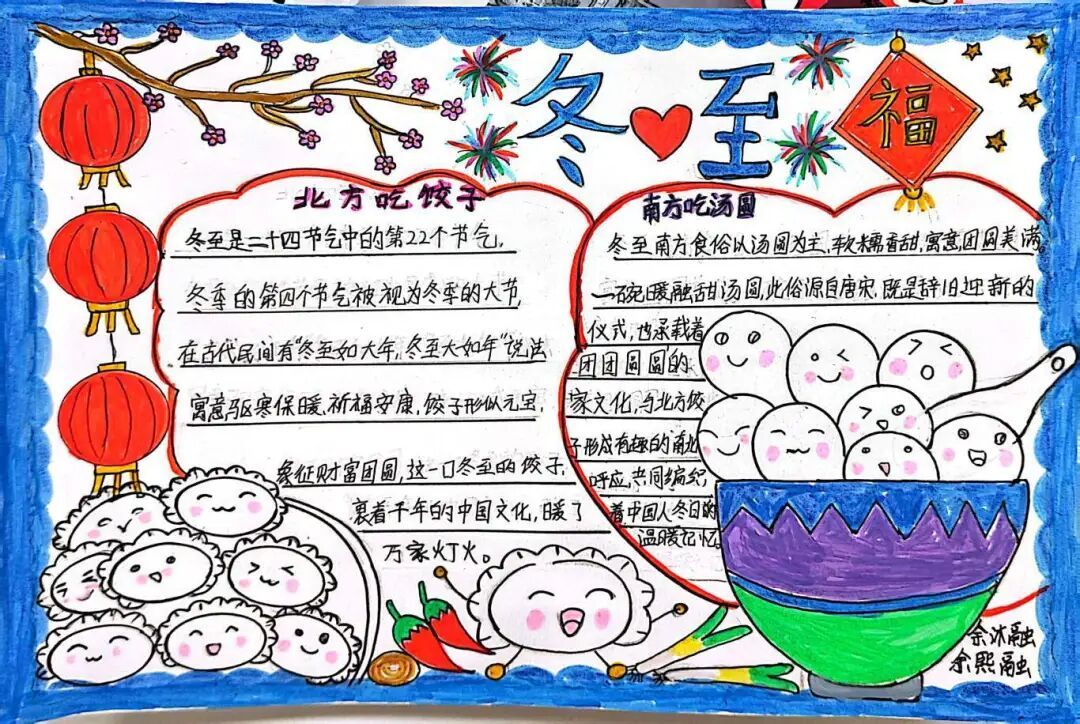 冬至
福
北方吃饺子
冬至是二十四节气中的第22个节气,
冬季的第四个节气被视为冬季的大节,
在古代民间有"冬至如大年,冬至大如年"说法
寓意驱寒保暖,祈福安康,饺子形似元宝,
象征财富团圆,这一口冬至的饺子,
裹着千年的中国文化,暖了
万家灯火。
南方吃汤圆
冬至南方食俗以汤圆为主,软糯香甜,寓意团圆美满。
一碗暖融甜汤圆,此俗源自唐宋,既是辞旧迎新的
仪式,也承载着
团团圆圆的
家文化,与北方饺
子形成有趣的南北
呼应,共同编织
着中国人冬日的
温暖记忆
余沐融
余熙融